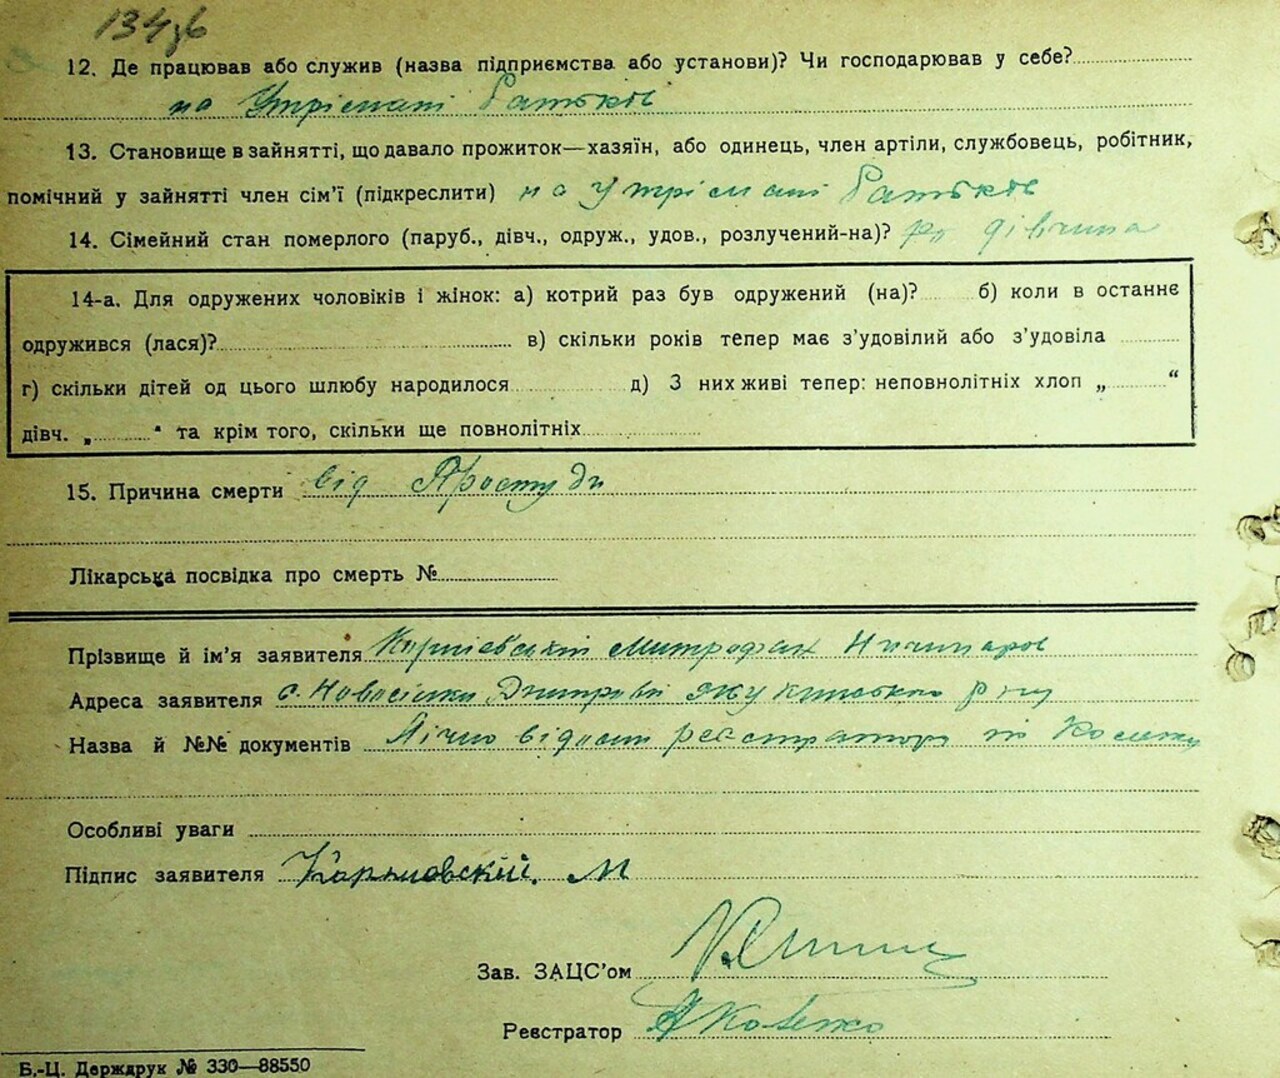 134зв
12. Де працював або служив (назва підприємства або установи)? Чи господарював у себе?
на Утрімані Батьків
13. Становище в зайнятті, що давало прожиток—хазяїн, або одинець, член артіли, службовець, робітник,
помічний у зайнятті член сім'ї (підкреслити) на Утрімані Батьків
14. Сімейний стан померлого (паруб., дівч., одруж., удов., розлучений-на)? дівчина
14-а. Для одружених чоловіків і жінок: а) котрий раз був одружений (на)? б) коли в останнє
одружився (лася)? в) скільки років тепер має з'удовілий або з'удовіла
г) скільки дітей од цього шлюбу народилося д) З них живі тепер: неповнолітніх хлоп „ “
дівч. „ “ та крім того, скільки ще повнолітніх
15. Причина смерти від Простуди
Лікарська посвідка про смерть №
Прізвище й ім'я заявителя Митрофан
Адреса заявителя с. Новосілки
Назва й №№ документів Лічно реєстратору
Особливі уваги
Підпис заявителя М
Зав. ЗАЦС'ом
Реєстратор Яковенко
Б.-Ц. Держдрук № 330—88550